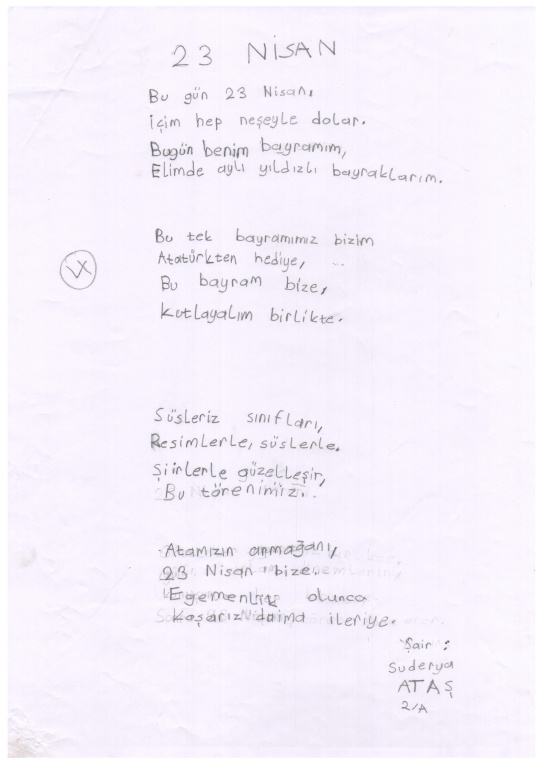 23 NİSAN
Bu gün 23 Nisan,
içim hep neşeyle dolar.
Bugün benim bayramım,
Elimde aylı yıldızlı bayraklarım.
Bu tek bayramımız bizim
Atatürkten hediye,
Bu bayram bize,
Kutlayalım birlikte.
Süsleriz sınıfları,
Resimlerle, süslerle.
Şiirlerle güzelleşir,
Bu törenimiz.
Atamızın armağanı,
23 Nisan bize.
Egemenlik olunca
Koşarız daima ileriye.
Şair :
Suderya
ATAŞ
2/A